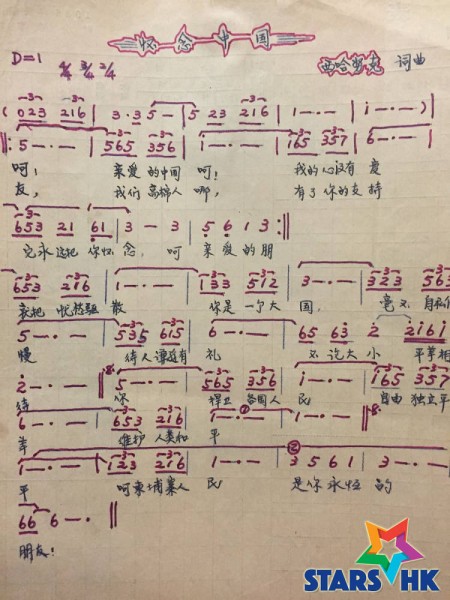 怀念中国
D=1 4/4 3/4 2/4 西哈努克 词曲
( 023 216 | 3·35- | 5 23 216 | 1--· | i--·- )
‖: 5--·- | 565 356 | 1--·- | 165 357 | 6--·
呵! 亲爱的中国 呵! 我的心没有 变
友, 我们高棉人 哪, 有了你的支持
653 21 61 | 3-3 | 5 6 1 3 :‖
它永远把你怀 念, 呵 亲爱的朋
653 216 | 1--·- | 133 512 | 3--·- | 323 563
哀把 忧愁驱 散 你是一个大 国, 毫不 自私
5--·- | 535 615 | 6--·- | 65 63 2 2161
慢 待人谦逊有 礼 不 论大 小 平等相
2--·- ‖ 5--·- | 565 356 | i--·- | 165 357
待 你 捍卫 各国人 民 自由 独立平
6--·- | 653 216 | 1--·- | 1--·- ‖
等 维护 人类和 平
1--·- | 123 216 | 1--·- | 3 5 6 1 | 3--·-
平 呵柬埔寨人 民 是你永恒 的
66 6-·- ‖
朋友!
STARS HK